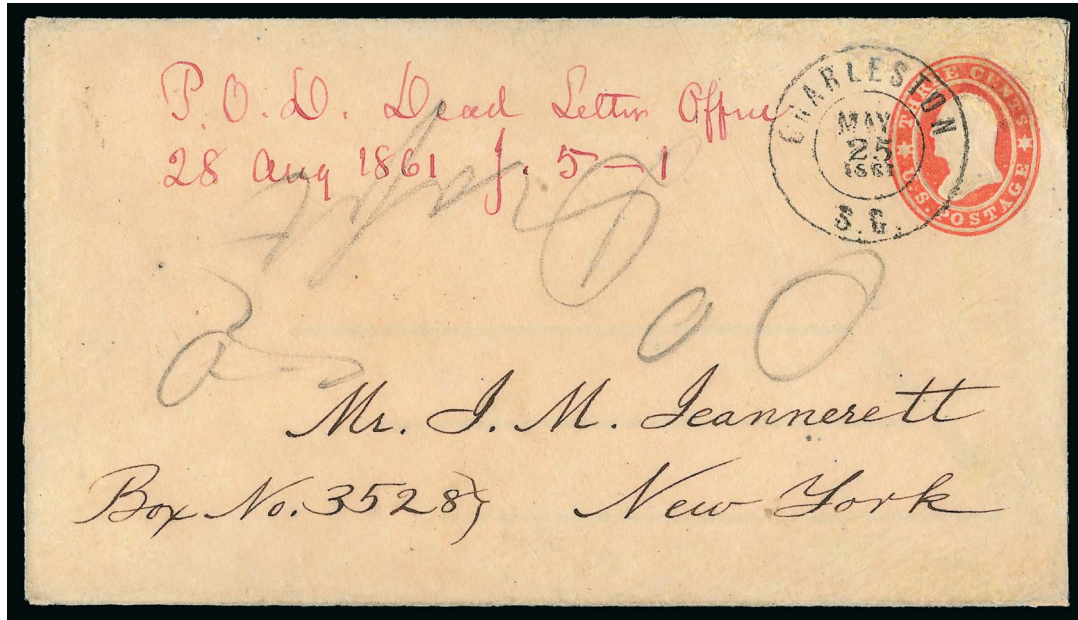 P. O. D. Dead Letter Office
28 Aug 1861 J. 5-1
CHARLESTON
MAY
25
1861
S.C.
THREE CENTS
U.S. POSTAGE
Mr. J. M. Jeannerett
Box No. 3528}
New York